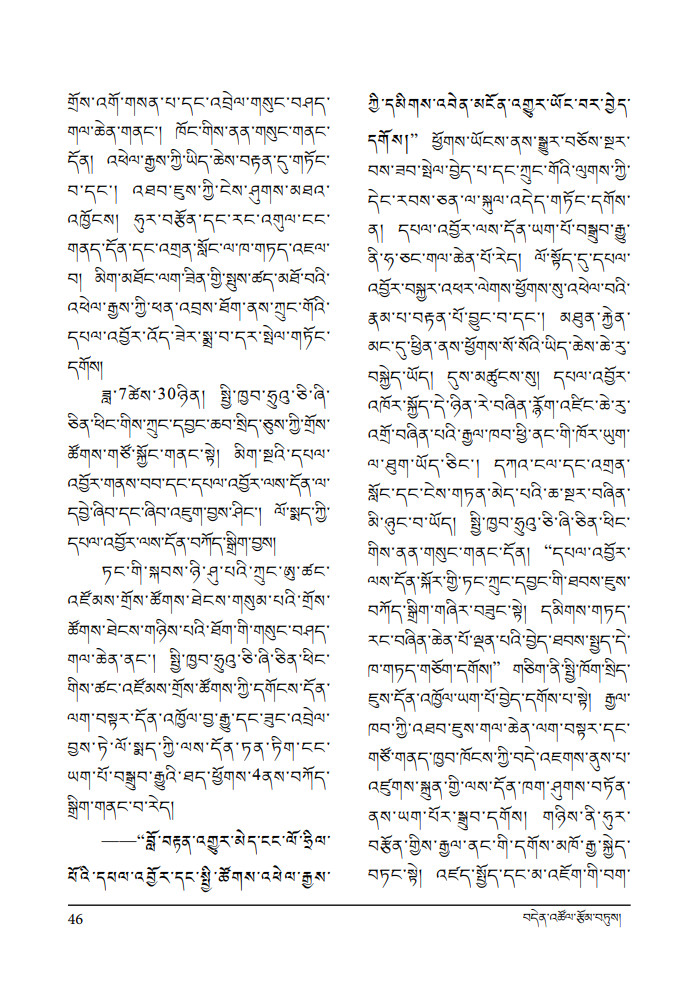 གྲོས་འགོ་གསན་པ་དང་འབྲེལ་གསུང་བཤད་
གལ་ཆེན་གནང་། ཁོང་གིས་ནན་གསུང་གནང་
དོན། འཕེལ་རྒྱས་ཀྱི་ཡིད་ཆེས་བརྟན་དུ་གཏོང་
བ་དང་། འཐབ་ཇུས་ཀྱི་ངེས་ཤུགས་མཐའ་
འཁྱོངས། ཧུར་བརྩོན་དང་རང་འགུལ་ངང་
གནད་དོན་དང་འགྲན་སློང་ལ་ཁ་གཏད་འཇལ་
བ། མིག་མཐོང་ལག་ཟིན་གྱི་སྤུས་ཚད་མཐོ་བའི་
འཕེལ་རྒྱས་ཀྱི་ཕན་འབྲས་ཐོག་ནས་ཀྲུང་གོའི་
དཔལ་འབྱོར་འོད་ཟེར་སྨྲ་བ་དར་སྤེལ་གཏོང་
དགོས།
ཟླ་7ཚེས་30ཉིན། སྤྱི་ཁྱབ་ཧྲུའུ་ཅི་ཞི་
ཅིན་ཕིང་གིས་ཀྲུང་དབྱང་ཆབ་སྲིད་ཅུས་ཀྱི་གྲོས་
ཚོགས་གཙོ་སྐྱོང་གནང་སྟེ། མིག་སྔའི་དཔལ་
འབྱོར་གནས་བབ་དང་དཔལ་འབྱོར་ལས་དོན་ལ་
དབྱེ་ཞིབ་དང་ཞིབ་འཇུག་བྱས་ཤིང་། ལོ་སྨད་ཀྱི་
དཔལ་འབྱོར་ལས་དོན་བཀོད་སྒྲིག་བྱས།
ཏང་གི་སྐབས་ཉི་ཤུ་པའི་ཀྲུང་ཨུ་ཚང་
འཛོམས་གྲོས་ཚོགས་ཐེངས་གསུམ་པའི་གྲོས་
ཚོགས་ཐེངས་གཉིས་པའི་ཐོག་གི་གསུང་བཤད་
གལ་ཆེན་ནང་། སྤྱི་ཁྱབ་ཧྲུའུ་ཅི་ཞི་ཅིན་ཕིང་
གིས་ཚང་འཛོམས་གྲོས་ཚོགས་ཀྱི་དགོངས་དོན་
ལག་བསྟར་དོན་འཁྱོལ་བྱ་རྒྱུ་དང་ཟུང་འབྲེལ་
བྱས་ཏེ་ལོ་སྨད་ཀྱི་ལས་དོན་ཏན་ཏིག་ངང་
ཡག་པོ་བསྒྲུབ་རྒྱུའི་ཐད་ཕྱོགས་4ནས་བཀོད་
སྒྲིག་གནང་བ་རེད།
——“བློ་བརྟན་འགྱུར་མེད་ངང་ལོ་ཧྲིལ་
པོའི་དཔལ་འབྱོར་དང་སྤྱི་ཚོགས་འཕེལ་རྒྱས་
ཀྱི་དམིགས་འབེན་མངོན་འགྱུར་ཡོང་བར་བྱེད་
དགོས།” ཕྱོགས་ཡོངས་ནས་སྒྱུར་བཅོས་སྔར་
བས་ཟབ་སྤེལ་བྱེད་པ་དང་ཀྲུང་གོའི་ལུགས་ཀྱི་
དེང་རབས་ཅན་ལ་སྐུལ་འདེད་གཏོང་དགོས་
ན། དཔལ་འབྱོར་ལས་དོན་ཡག་པོ་བསྒྲུབ་རྒྱུ་
ནི་ཧ་ཅང་གལ་ཆེན་པོ་རེད། ལོ་སྟོད་དུ་དཔལ་
འབྱོར་བསྐྱར་འཕར་ལེགས་ཕྱོགས་སུ་འཕེལ་བའི་
རྣམ་པ་བརྟན་པོ་བྱུང་བ་དང་། མཐུན་རྐྱེན་
མང་དུ་ཕྱིན་ནས་ཕྱོགས་སོ་སོའི་ཡིད་ཆེས་ཆེ་རུ་
བསྐྱེད་ཡོད། དུས་མཚུངས་སུ། དཔལ་འབྱོར་
འཁོར་སྐྱོད་དེ་ཉིན་རེ་བཞིན་རྙོག་འཛིང་ཆེ་རུ་
འགྲོ་བཞིན་པའི་རྒྱལ་ཁབ་ཕྱི་ནང་གི་ཁོར་ཡུག་
ལ་ཐུག་ཡོད་ཅིང་། དཀའ་ངལ་དང་འགྲན་
སློང་དང་ངེས་གཏན་མེད་པའི་ཆ་སྔར་བཞིན་
མི་ཉུང་བ་ཡོད། སྤྱི་ཁྱབ་ཧྲུའུ་ཅི་ཞི་ཅིན་ཕིང་
གིས་ནན་གསུང་གནང་དོན། “དཔལ་འབྱོར་
ལས་དོན་སྐོར་གྱི་ཏང་ཀྲུང་དབྱང་གི་ཐབས་ཇུས་
བཀོད་སྒྲིག་གཞིར་བཟུང་སྟེ། དམིགས་གཏད་
རང་བཞིན་ཆེན་པོ་ལྡན་པའི་བྱེད་ཐབས་སྤྱད་དེ་
ཁ་གཏད་གཅོག་དགོས།” གཅིག་ནི་སྤྱི་ཁོག་སྲིད་
ཇུས་དོན་འཁྱོལ་ཡག་པོ་བྱེད་དགོས་པ་སྟེ། རྒྱལ་
ཁབ་ཀྱི་འཐབ་ཇུས་གལ་ཆེན་ལག་བསྟར་དང་
གཙོ་གནད་ཁྱབ་ཁོངས་ཀྱི་བདེ་འཇགས་ནུས་པ་
འཛུགས་སྐྲུན་གྱི་ལས་དོན་ཁག་ཤུགས་བཏོན་
ནས་ཡག་པོར་སྒྲུབ་དགོས། གཉིས་ནི་ཧུར་
བརྩོན་གྱིས་རྒྱལ་ནང་གི་དགོས་མཁོ་རྒྱ་སྐྱེད་
བཏང་སྟེ། འཛད་སྤྱོད་དང་མ་འཇོག་གི་བག་
46
བདེན་འཚོལ་རྩོམ་བཏུས།